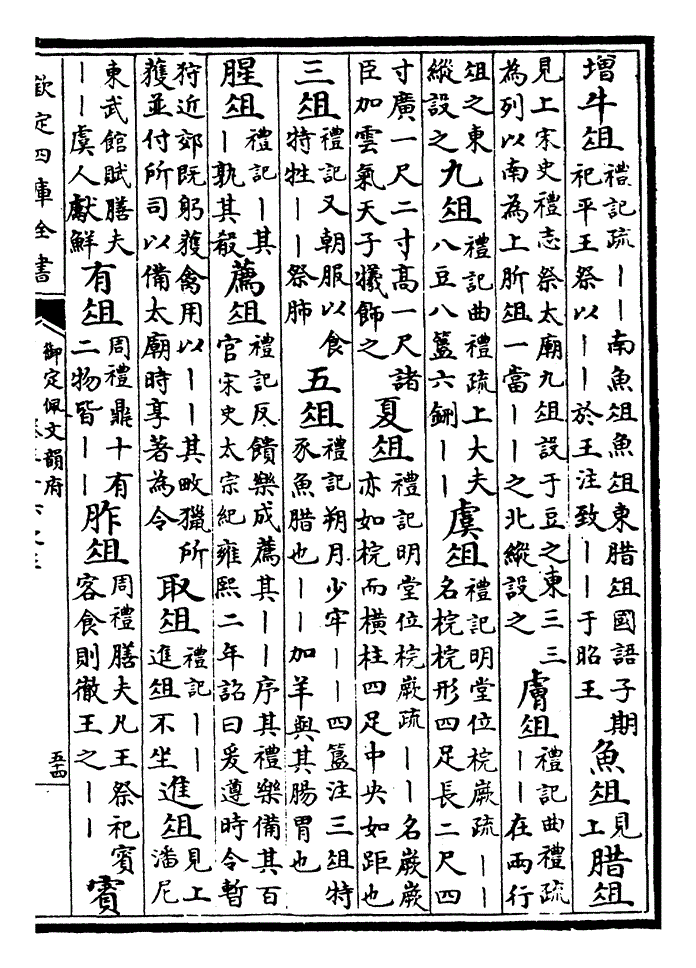 增牛俎禮記疏丨丨南魚俎魚俎東腊俎國語子期祀平王祭以丨丨於王注致丨丨于昭王魚俎見上腊俎
見上宋史禮志祭太廟九俎設于豆之東三三為列以南為上肵俎一當丨丨之北縱設之膚俎禮記曲禮疏丨丨在兩行
俎之東縱設之九俎禮記曲禮疏上大夫八豆八簋六鉶丨丨虞俎禮記明堂位梡嶡疏丨丨名梡梡形四足長二尺四
寸廣一尺二寸高一尺諸臣加雲氣天子犧飾之夏俎禮記明堂位梡嶡疏丨丨名嶡嶡亦如梡而橫柱四足中央如距也
三俎禮記又朝服以食特牲丨丨祭肺五俎禮記朔月少牢丨丨四簋注三俎特豕魚腊也丨丨加羊與其腸胃也
腥俎禮記丨其丨孰其殽薦俎禮記反饋樂成薦其丨丨序其禮樂備其百官宋史太宗紀雍熙二年詔曰爰遵時令暫
狩近郊既躬獲禽用以丨丨其畋獵所獲並付所司以備太廟時享著為令取俎禮記丨丨進俎不坐進俎見上潘尼
東武館賦膳夫丨丨虞人獻鮮有俎周禮鼎十有二物皆丨丨胙俎周禮膳夫凡王祭祀賓客食則徹王之丨丨賓
欽定四庫全書
御定佩文韻府
五十四